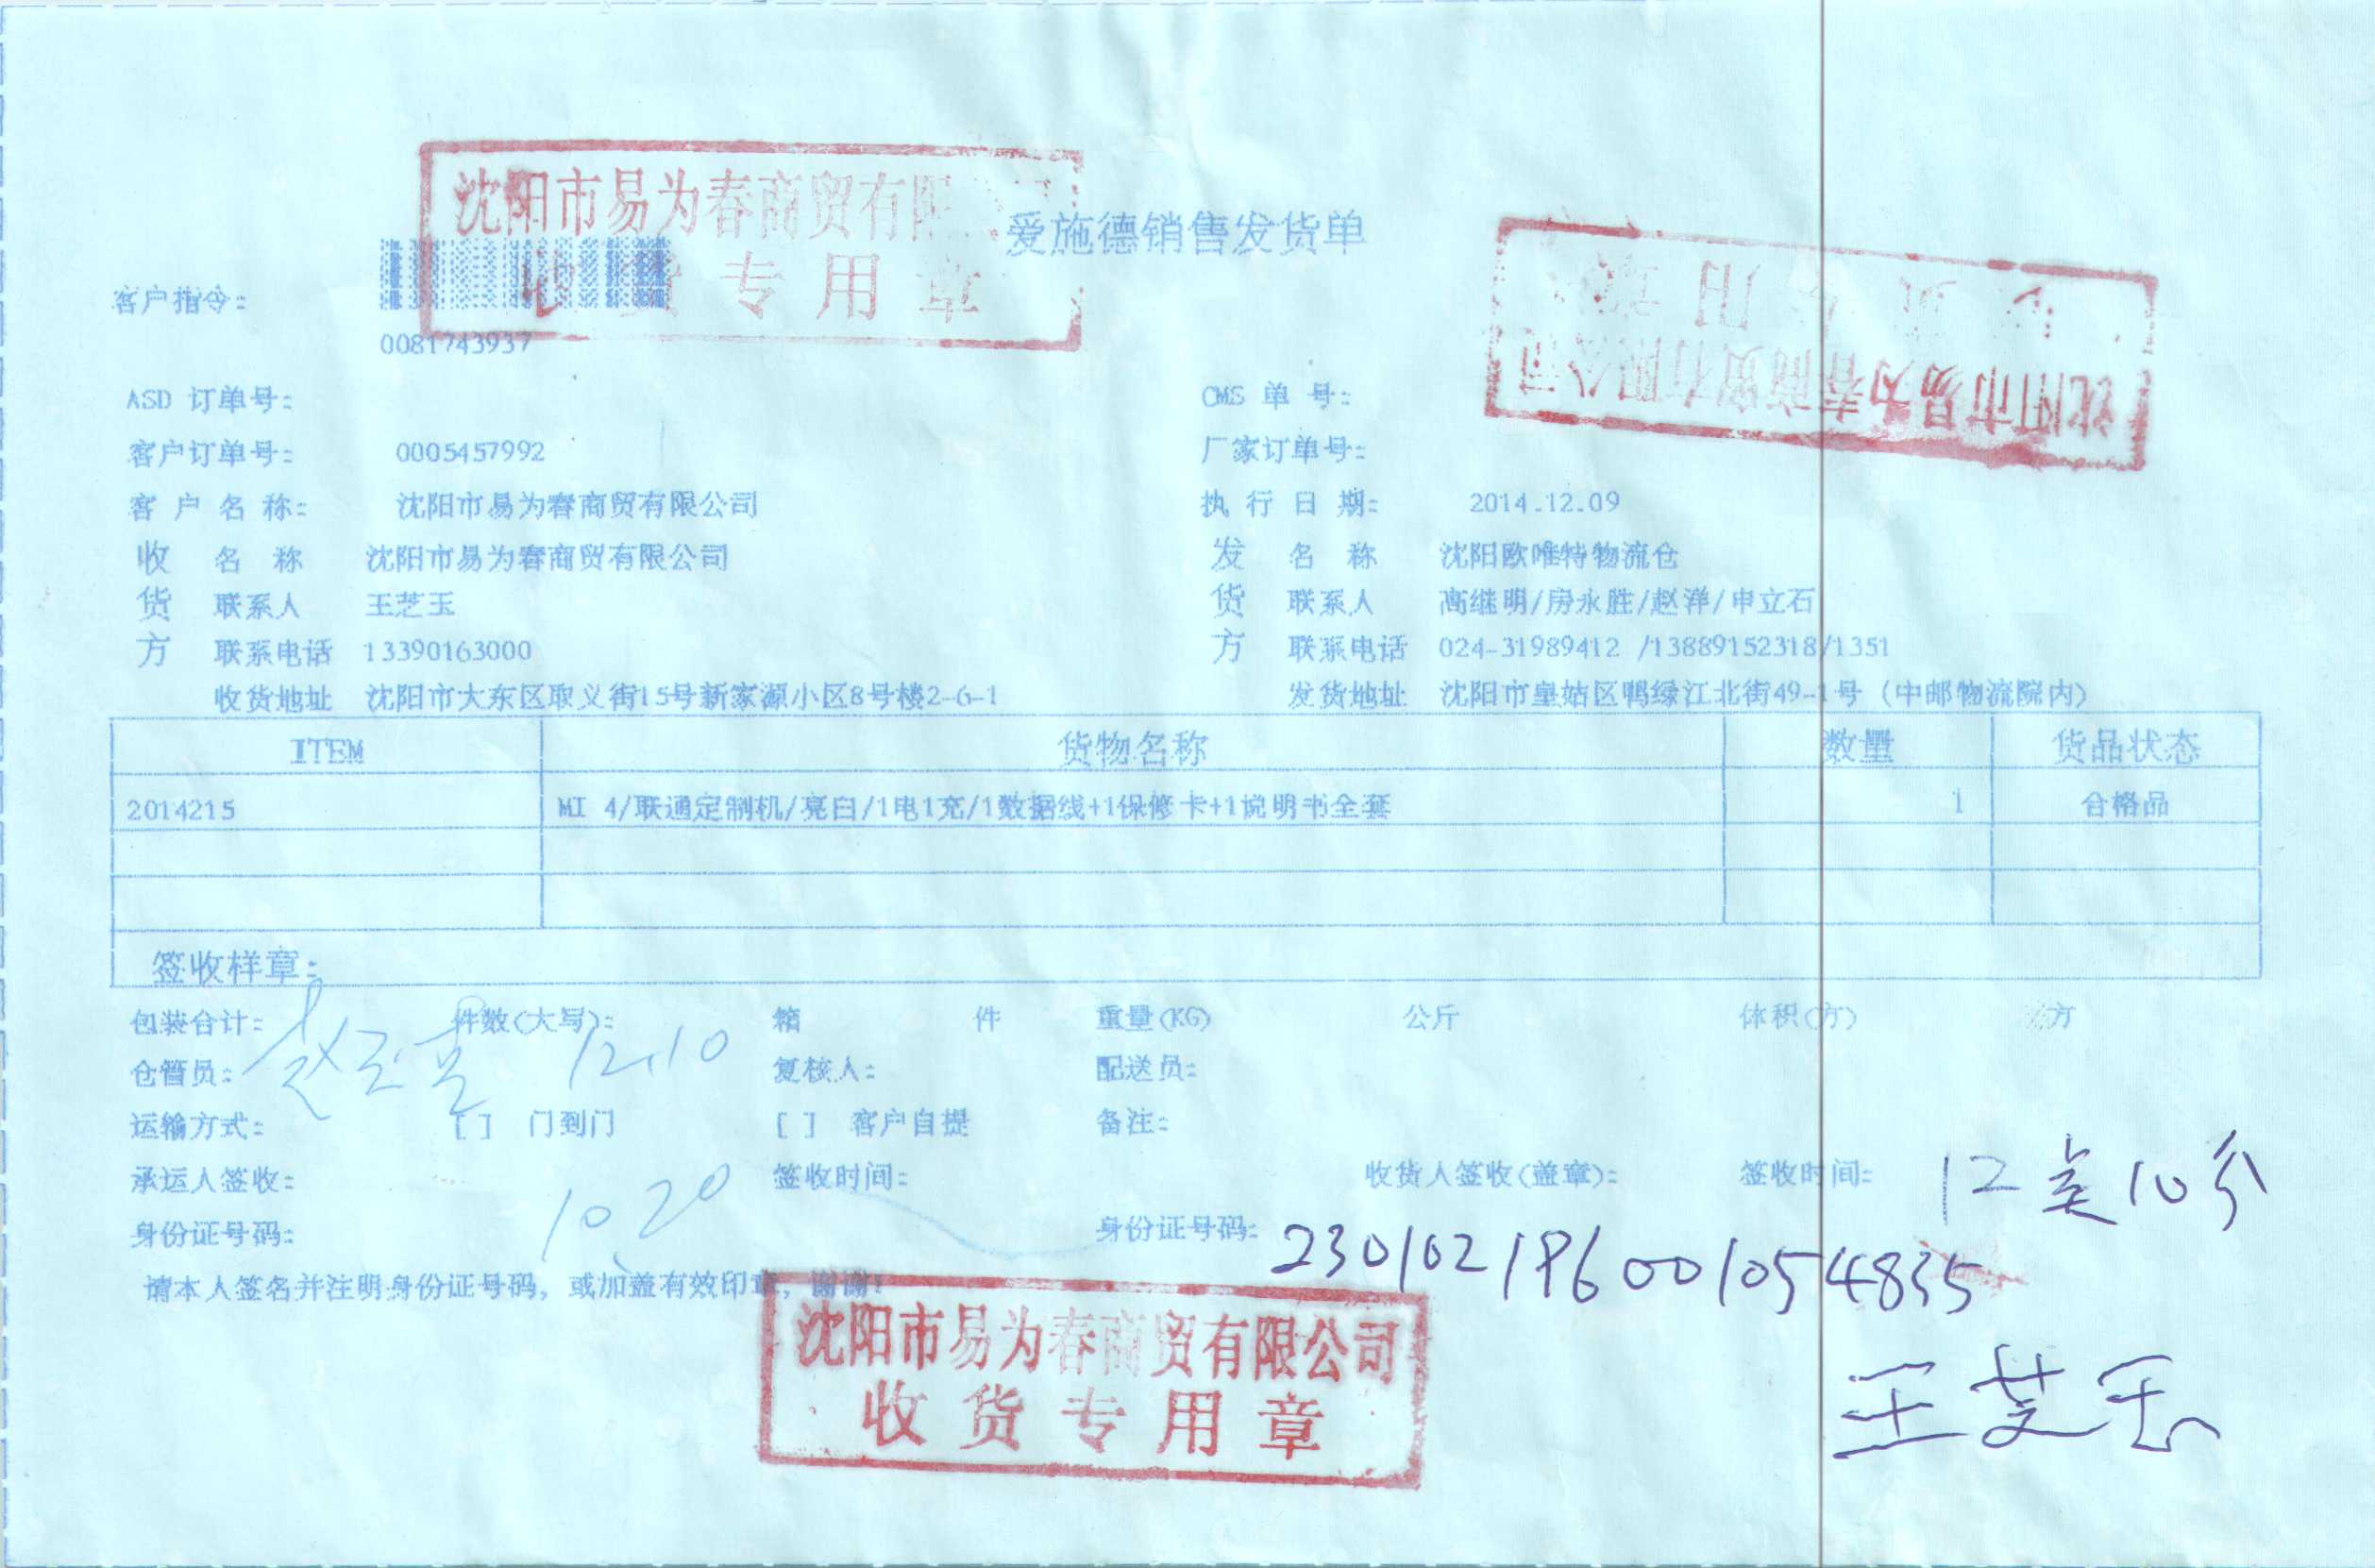 沈阳市易为春商贸有限
专用章
爱施德销售发货单
沈阳市易为春商贸有限公司
客户指令:
0081743937
ASD 订单号:
CMS 单 号:
客户订单号: 0005457992
厂家订单号:
客 户 名 称: 沈阳市易为春商贸有限公司
执 行 日 期: 2014.12.09
收货方
名 称 沈阳市易为春商贸有限公司
联系人 王芝玉
联系电话 13390163000
收货地址 沈阳市大东区取义街15号新家源小区8号楼2-6-1
发货方
名 称 沈阳欧唯特物流仓
联系人 高继明/房永胜/赵洋/申立石
联系电话 024-31989412 /13889152318/1351
发货地址 沈阳市皇姑区鸭绿江北街49-1号 (中邮物流院内)
ITEM 货物名称 数量 货品状态
2014215 MI 4/联通定制机/亮白/1电1充/1数据线+1保修卡+1说明书全套 1 合格品
签收样章:
包装合计: 件数(大写): 箱 件 重量(KG) 公斤 体积(方) 方
仓管员: 12.10 复核人: 配送员:
运输方式: [ ] 门到门 [ ] 客户自提 备注:
承运人签收: 签收时间: 收货人签收(盖章): 签收时间: 12点10分
10.20
身份证号码: 身份证号码: 230102196001054835
请本人签名并注明身份证号码, 或加盖有效印章, 谢谢!
沈阳市易为春商贸有限公司
收货专用章
王芝玉